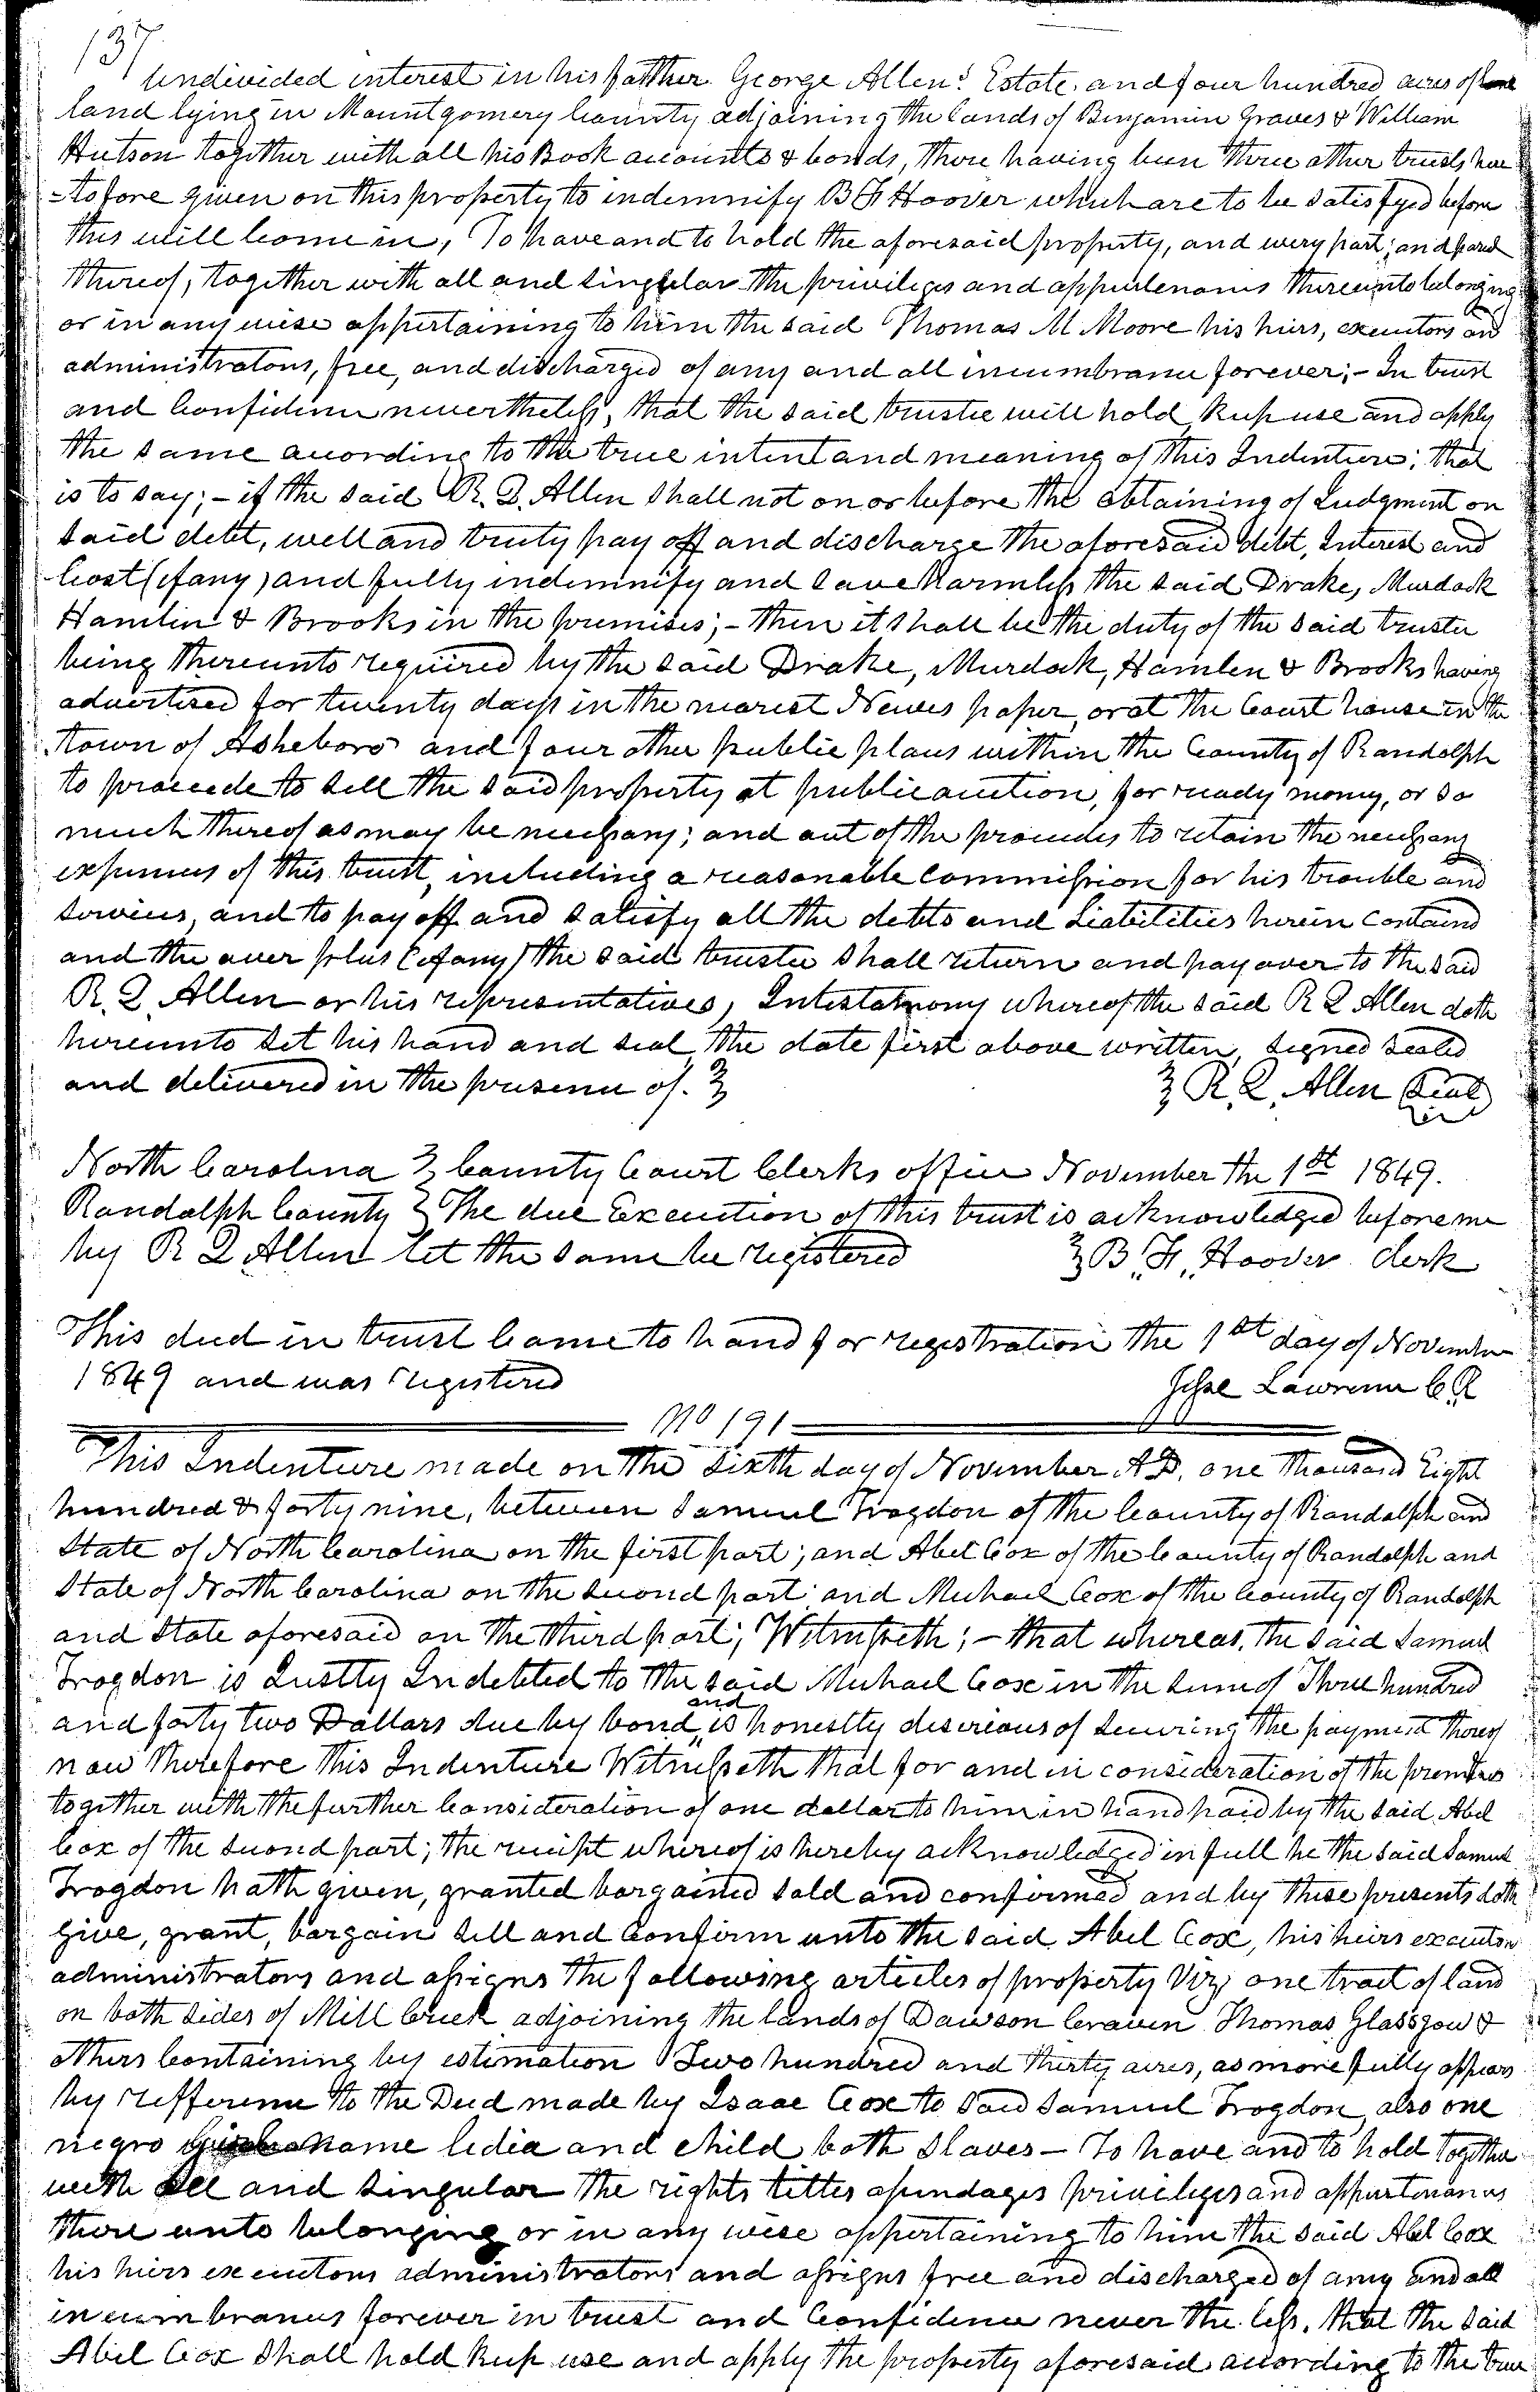 137
Undivided interest in his father George Allens Estate, and four hundred acres of
land lying in Mountgomery County adjoining the lands of Benjamin Graves & William
Hutson together with all his Book accounts & bonds, there having been three other trusts here
-tofore given on this property to indemnify B F Hoover which are to be satisfyed before
this will come in, To have and to hold the aforesaid property, and every part; and parcel
thereof, together with all and singular the privileges and appurtenances thereunto belonging
or in any wise appertaining to him the said Thomas M Moore his heirs, executors and
administrators, free, and discharged of any and all incumbrance forever;- In trust
and Confidence nevertheless, that the said trustee will hold, keep use and apply
the same according to the true intent and meaning of this Indenture; that
is to say;- if the said R. Q. Allen shall not on or before the obtaining of Judgment on
said debt, well and truly pay off and discharge the aforesaid debt, Interest and
Cost (if any) and fully indemnify and save harmless the said Drake, Murdock
Hamlin & Brooks in the premises;- then it shall be the duty of the said trustee
being thereunto required by the said Drake, Murdock, Hamlen & Brooks having
advertised for twenty days in the nearest Newes paper, or at the Court house in the
town of Asheboro and four other public places within the County of Randolph
to proceede to sell the said property at public auction, for ready money, or so
much thereof as may be necessary; and out of the proceedes to retain the necessary
expences of this trust, including a reasonable Commission for his trouble and
services, and to pay off and satisfy all the debts and Liabilities herein contained
and the over plus (if any) the said trustee shall return and pay over to the said
R. Q. Allen or his representatives, Intestamony whereof the said R Q Allen doth
hereunto set his hand and seal, the date first above written, signed sealed
and delivered in the presence of. R. Q. Allen Seal
North Carolina County Court Clerks office November the 1st 1849.
Randolph County The due Execution of this trust is acknowledged before me
by R Q Allen let the same be registered B. F. Hoover Clerk
This deed in trust came to hand for registration the 1st day of November
1849 and was registered Jesse Lawrence C R
No 191
This Indenture made on the sixth day of November A.D. one thousand Eight
hundred & forty nine, between Samuel Trogdon of the County of Randolph and
State of North Carolina on the first part; and Abel Cox of the County of Randolph and
State of North Carolina on the second part; and Michael Cox of the County of Randolph
and State aforesaid on the third part; Witnesseth;- that whereas, the said Samuel
Trogdon is Justly Indebted to the said Michael Cox in the sum of Three hundred
and forty two Dollars due by bond and is honestly desireous of securing the payment thereof
now therefore this Indenture Witnesseth that for and in consideration of the premises
together with the further Consideration of one dollar to him in hand paid by the said Abel
Cox of the second part; the receipt whereof is hereby acknowledged in full he the said Samuel
Trogdon hath given, granted bargained sold and confirmed and by these presents doth
give, grant, bargain sell and Confirm unto the said Abel Cox, his heirs executors
administrators and assigns the following articles of property Viz, one tract of land
on both sides of Mill Creek adjoining the lands of Dawson Craven Thomas Glassgow &
others Containing by estimation Two hundred and thirty acres, as more fully appears
by refference to the Deed made by Isaac Cox to said Samuel Trogdon, also one
negro name lidia and child both slaves - To have and to hold together
with all and singular the rights tittes apendages privileges and appurtenances
there unto belonging or in any wise appertaining to him the said Abel Cox
his heirs executors administrators and assigns free and discharged of any and all
incumbrances forever in trust and Confidence never the less, that the said
Abel Cox shall hold keep use and apply the property aforesaid according to the true